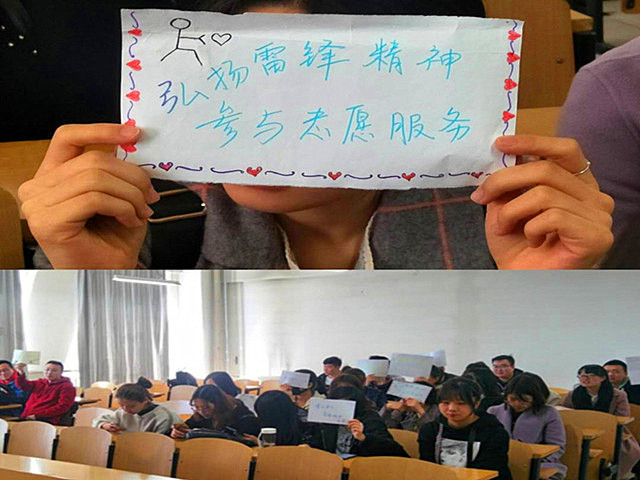 弘扬雷锋精神
参与志愿服务